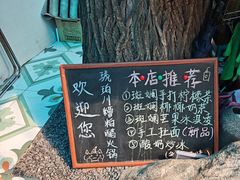 欢迎您
琥珀川糟粕醋火锅
本店推荐
①斑斓手打柠檬茶
②斑斓椰椰奶茶
③斑斓芒果冰豆花
④手工扯面(新品)
⑤酸奶炒冰